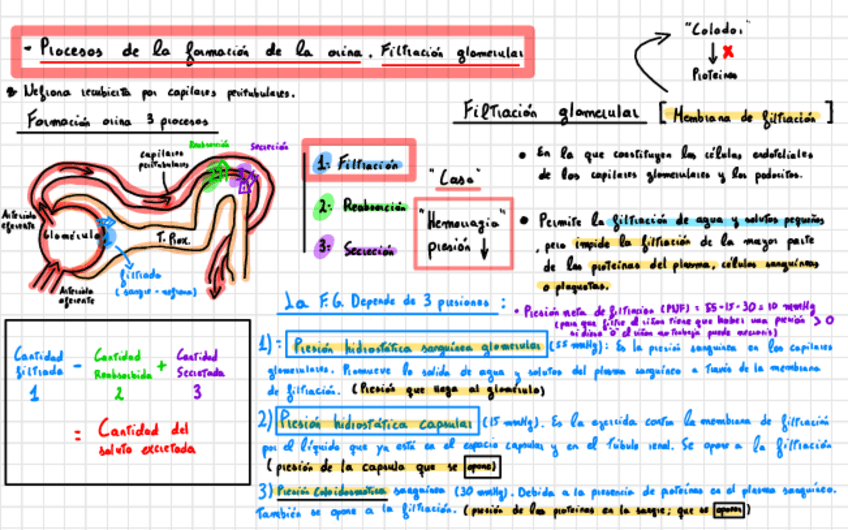 - Procesos de la formación de la orina. Filtración glomerular
Nefrona recubierta por capilares peritubulares.
Formación orina 3 procesos
"Colador"
Proteinas
Filtración glomerular [Membrana de filtración]
capilares
peritubulares
Reabsorción
Secreción
Arteriola
eferente
Glomérulo
T. Prox.
filtrado
(sangre - nefrona)
Arteriola
aferente
1: Filtración
2: Reabsorción
3: Secreción
"Caso"
"Hemorragia"
presión ↓
• En la que constituyen las células endoteliales
de los capilares glomerulares y los podocitos.
• Permite la filtración de agua y solutos pequeños
, pero impide la filtración de la mayor parte
de las proteinas del plasma, células sanguíneas
o plaquetas.
La F.G. Depende de 3 presiones :
• Presión neta de filtración (PNF) = 55-15-30 = 10 mmHg
(para que filtre el riñon tiene que haber una presión > 0
si diera "0" el riñon no trabaja
1) = Presión hidrostática sanguínea glomerular (55 mmHg): Es la presión sanguínea en los capilares
glomerulares. Promueve la salida de agua y solutos del plasma sanguíneo a través de la membrana
de filtración. (Presión que llega al glomérulo)
2) Presión hidrostática capsular (15 mmHg). Es la ejercida contra la membrana de filtración
por el líquido que ya está en el espacio capsular y en el túbulo renal. Se opone a la filtración
(presión de la capsula que se opone)
3) Presión Coloidosmotica sanguínea (30 mmHg). Debida a la presencia de proteínas en el plasma sanguíneo.
También se opone a la filtración. (presión de las proteinas en la sangre; que se oponen)
Cantidad
filtrada
1
-
Cantidad
Reabsorbida
2
+
Cantidad
Secretada
3
= Cantidad del
soluto excretado